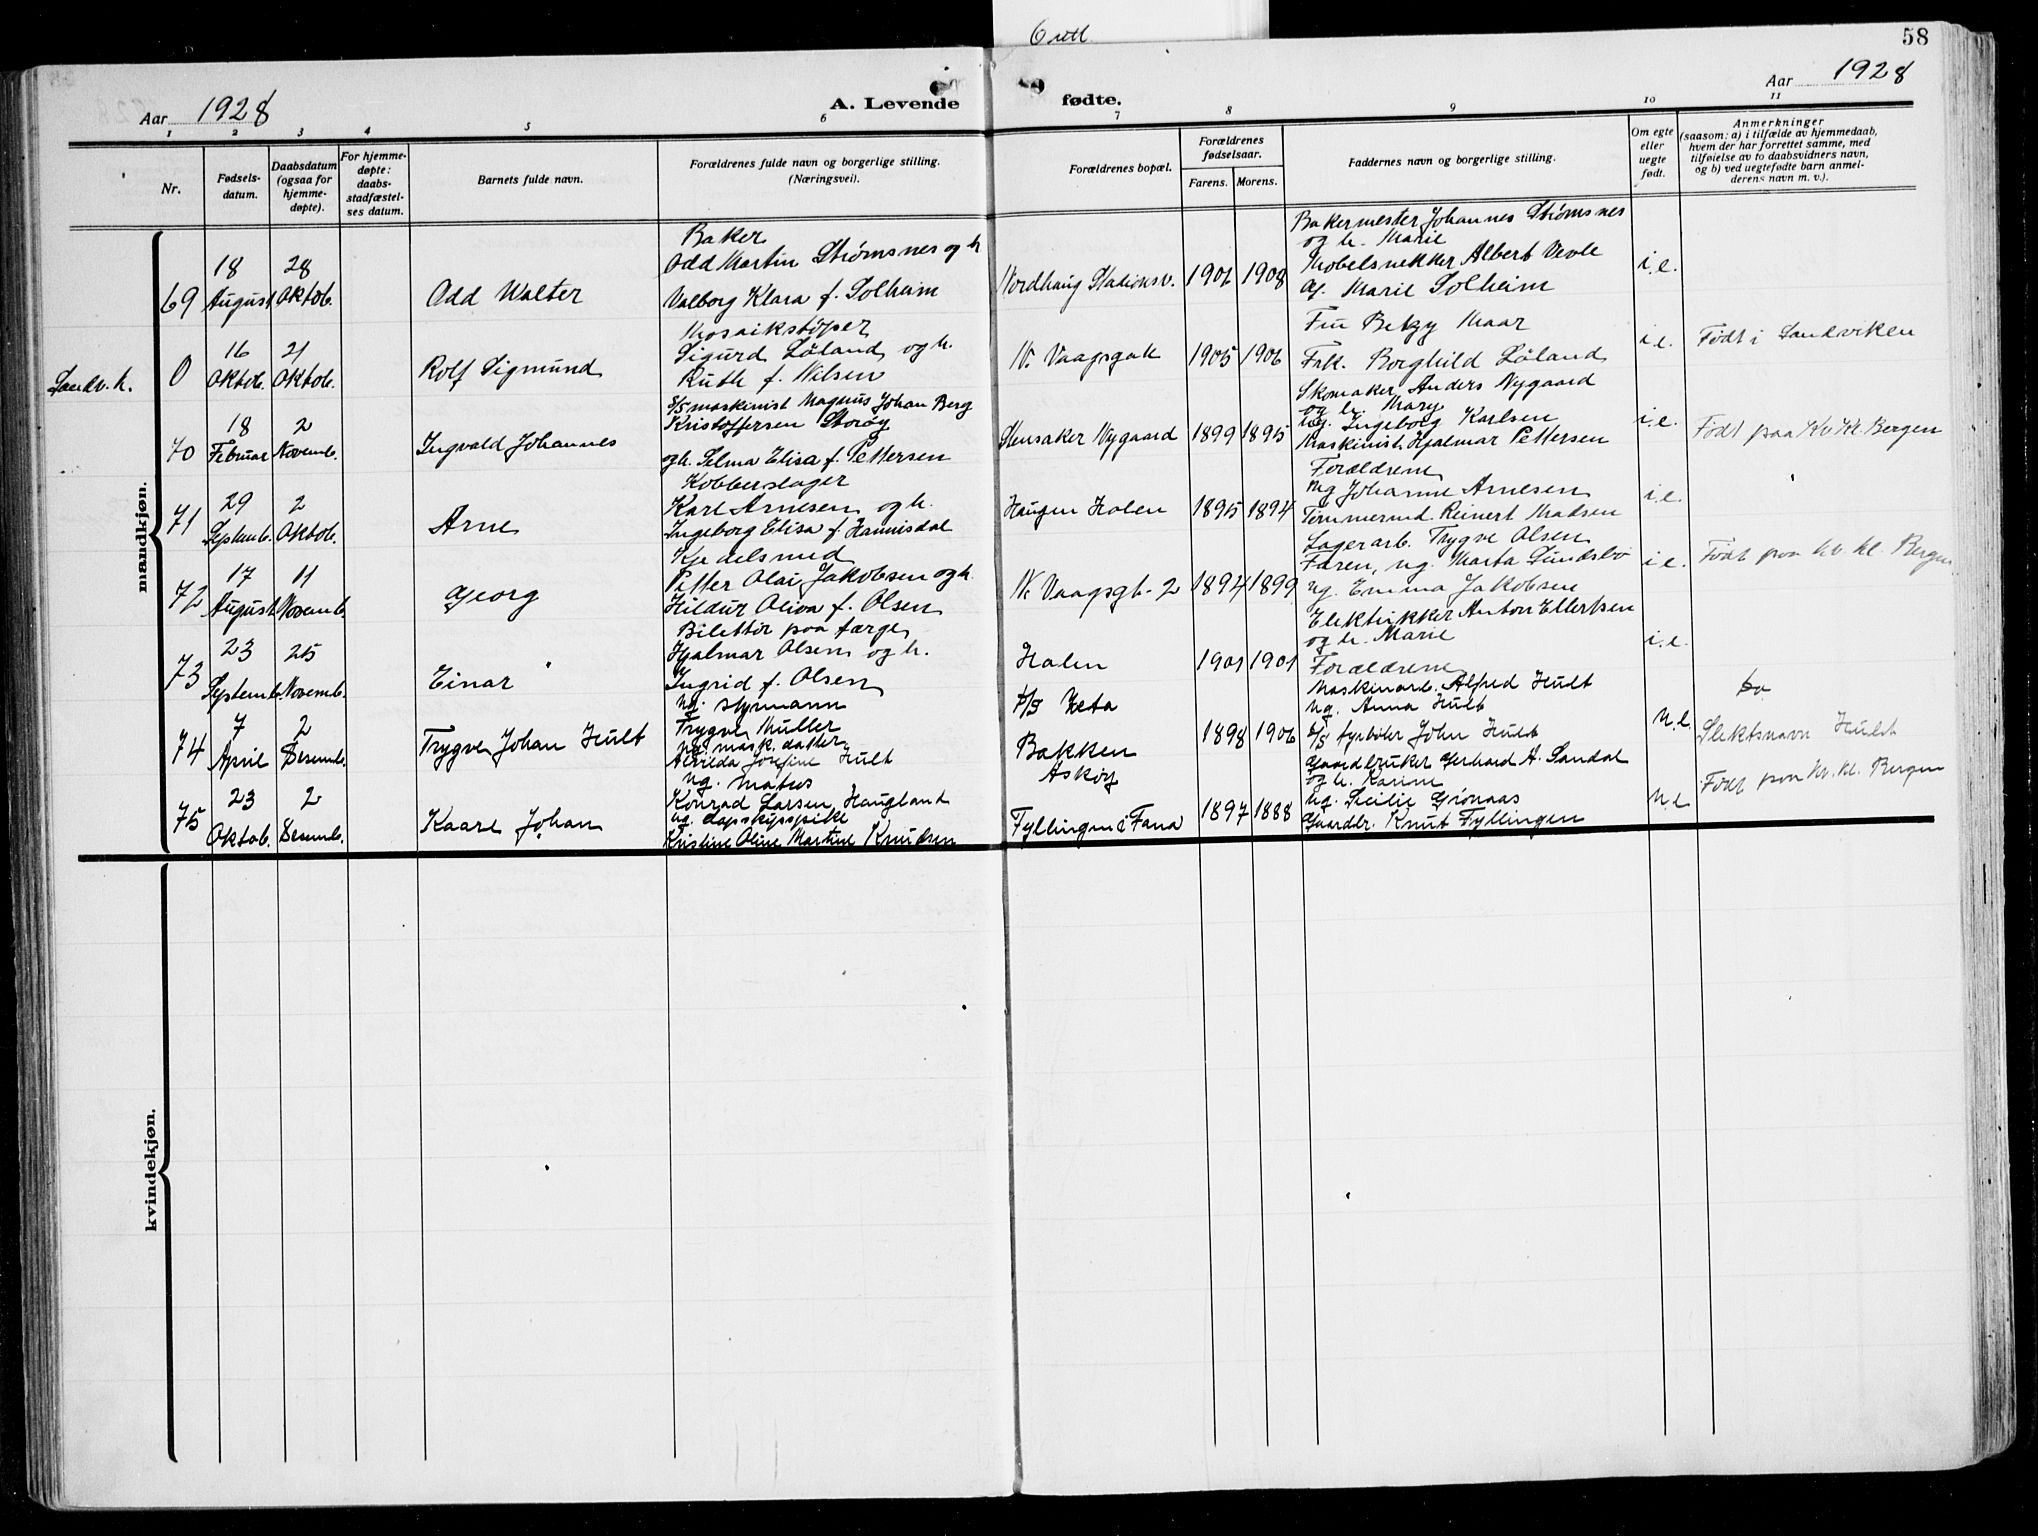 6 utl
58
Aar 1928
A. Levende
fødte.
Aar 1928
1 2 3 4 5 6 7 8 9 10 11
Nr.
Fødsels-
datum.
Daabsdatum
(ogsaa for
hjemme-
døpte).
For hjemme-
døpte:
daabs-
stadfæstel-
ses datum.
Barnets fulde navn.
Forældrenes fulde navn og borgerlige stilling.
(Næringsvei).
Forældrenes bopæl.
Forældrenes
fødselsaar.
Farens. Morens.
Faddernes navn og borgerlige stilling.
Om egte
eller
uegte
født.
Anmerkninger
(saasom: a) i tilfælde av hjemmedaab,
hvem der har forrettet samme, med
tilføielse av to daabsvidners navn,
og b) ved uegtefødte barn anmel-
derens navn m. v.).
mandkjøn.
69
18
August
28
Oktob.
Odd Walter
Baker
Odd Martin Strømsnes og h
Valborg Klara f. Solheim
Nordhaug Stationsv.
1901 1908
Bakermester Johannes Strømsnes
og h. Marie
Møbelsnekker Albert Vevle
Marie Solheim
i.e.
Sandv. k.
0
16
Oktob.
21
Oktob.
Rolf Sigmund
Mosaikstøper
Sigurd Løland og h.
Ruth f. Nilsen
N. Vaagsgate
1905 1906
Fru Betzy Maar
Frk. Borghild Løland
Skomaker Anders Nygaard
og h. Mary
i.e.
Født i Sandviken
70
18
Februar
2
Novemb.
Ingvald Johannes
S/S maskinist Magnus Johan Berg
Kristoffersen Storøy
og h. Selma Elisa f. Pettersen
Stensaker Nygaard
1899 1895
Ug. Ingeborg Karlsen
Maskinist Hjalmar Pettersen
Forældrene
i.e.
Født paa Kv. Kl. Bergen
71
29
Septemb.
2
Oktob.
Arne
Kobberslager
Karl Arnesen og h.
Ingeborg Elisa f. Hannisdal
Haugen Holen
1895 1894
Ug Johanne Arnesen
Tømmermd. Reinert Madsen
Lagerarb. Trygve Olsen
i.e.
72
17
August
11
Novemb.
Georg
Kjedelsmed
Petter Olai Jakobsen og h.
Hildur Oliva f. Olsen
N. Vaagsgt. 2
1894 1899
Faren, ug. Marta Sundsbø
ug. Emma Jakobsen
Elektrikker Anton Ellertsen
og h. Marie
i.e.
Født paa kv. kl. Bergen
73
23
Septemb.
25
Novemb.
Einar
Bilettør paa færge
Hjalmar Olsen og h.
Ingrid f. Olsen
Holen
1901 1901
Forældrene
Maskinarb. Alfred Hult
ug. Anna Hult
i.e.
do
74
7
April
2
Desemb.
Trygve Johan Hult
Ug. styrmann
Trygve Müller
Ug. mask. datter
Alvilda Josefine Hult
D/S Heta
Bakken
Askøy
1898 1906
S/S fyrbøter John Hult
Gaardbruker Gerhard A. Sandal
og h. Karine
u.e.
Slektsnavn Hult
75
23
Oktob.
2
Desemb.
Kaare Johan
ug. matros
Konrad Larsen Haugland
Kristine Oline Martine Knudsen
Fyllingen i Fana
1897 1888
ug. Secilie Grønaas
Gaardbr. Knut Fyllingen
u.e.
Født paa kv. kl. Bergen
kvindekjøn.